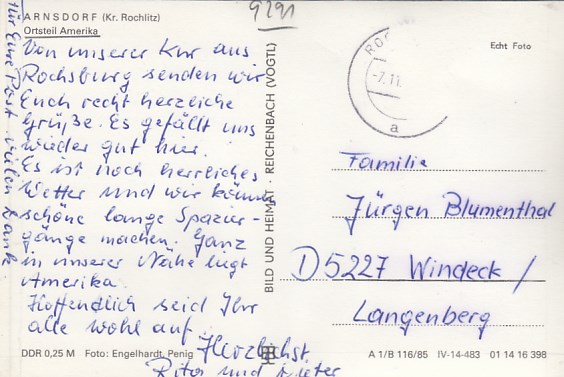 9291
ARNSDORF (Kr. Rochlitz)
Ortsteil Amerika
Von unserer Kur aus
Rochsburg senden wir
Euch recht herzliche
Grüße. Es gefällt uns
wieder gut hier.
Es ist noch herrliches
Wetter und wir können
schöne lange Spazier-
gänge machen. Ganz
in unserer Nähe liegt
Amerika.
Hoffendlich seid Ihr
alle wohl auf.
Herzlichst
Rita und Dieter
Für Eure Post vielen Dank
BILD UND HEIMAT · REICHENBACH (VOGTL)
Echt Foto
RO
-7.11.
a
Familie
Jürgen Blumenthal
D 5227 Windeck /
Langenberg
DDR 0,25 M Foto: Engelhardt, Penig
A 1/B 116/85 IV-14-483 01 14 16 398